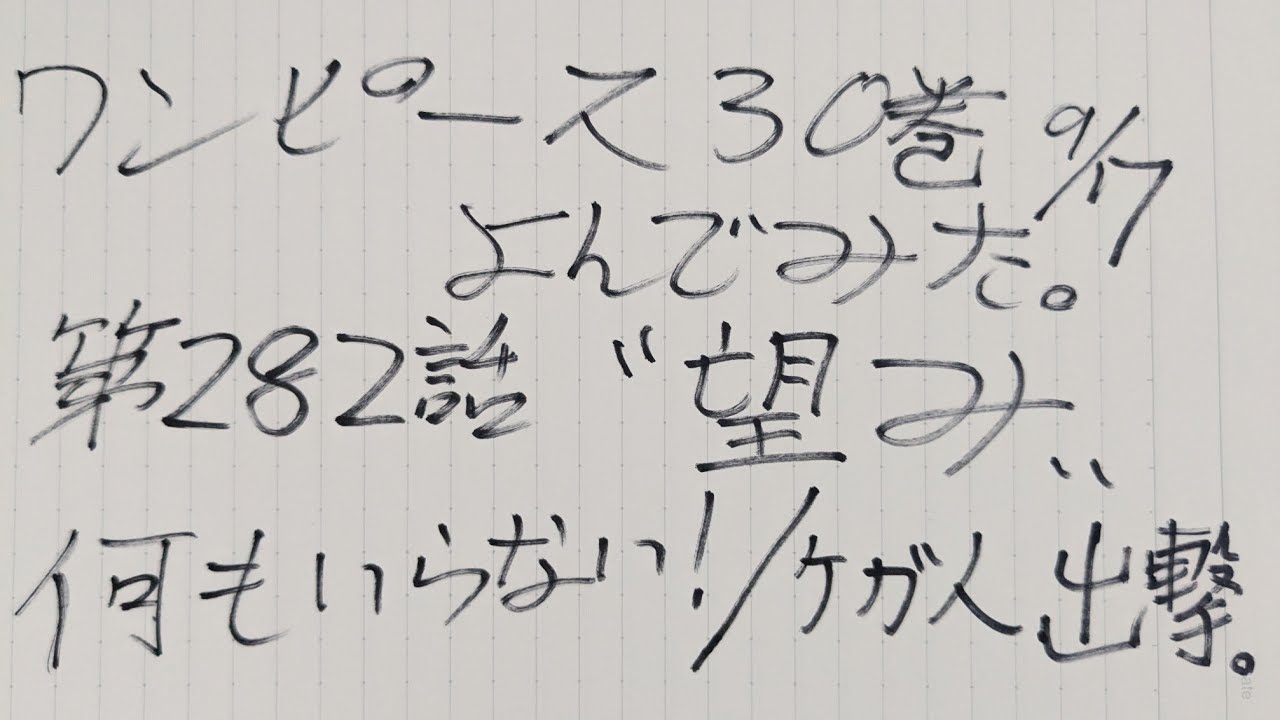 ワンピース30巻 9/17
よんでみた。
第282話 〝望み〟
何もいらない!/ケガ人出撃。
ate